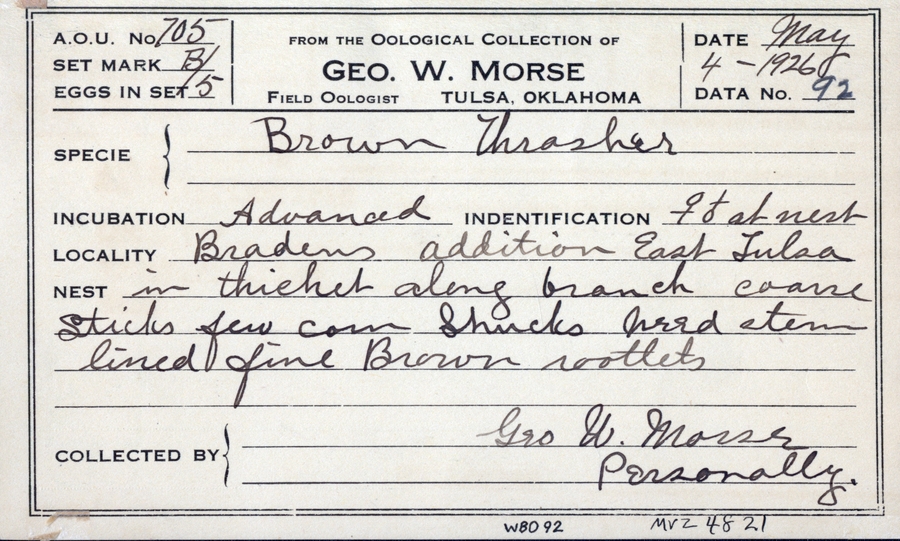 A.O.U. No. 705
SET MARK B/
EGGS IN SET /5
FROM THE OOLOGICAL COLLECTION OF
GEO. W. MORSE
FIELD OOLOGIST TULSA, OKLAHOMA
DATE May
4 - 1926
DATA No. 92
SPECIE { Brown Thrasher
INCUBATION Advanced INDENTIFICATION at nest
LOCALITY Bradens addition East Tulsa
NEST in thicket along branch coarse
Sticks few corn Shucks weed stem
lined fine Brown rootlets
COLLECTED BY { Geo W. Morse
Personally.
W8092 MVZ 4821